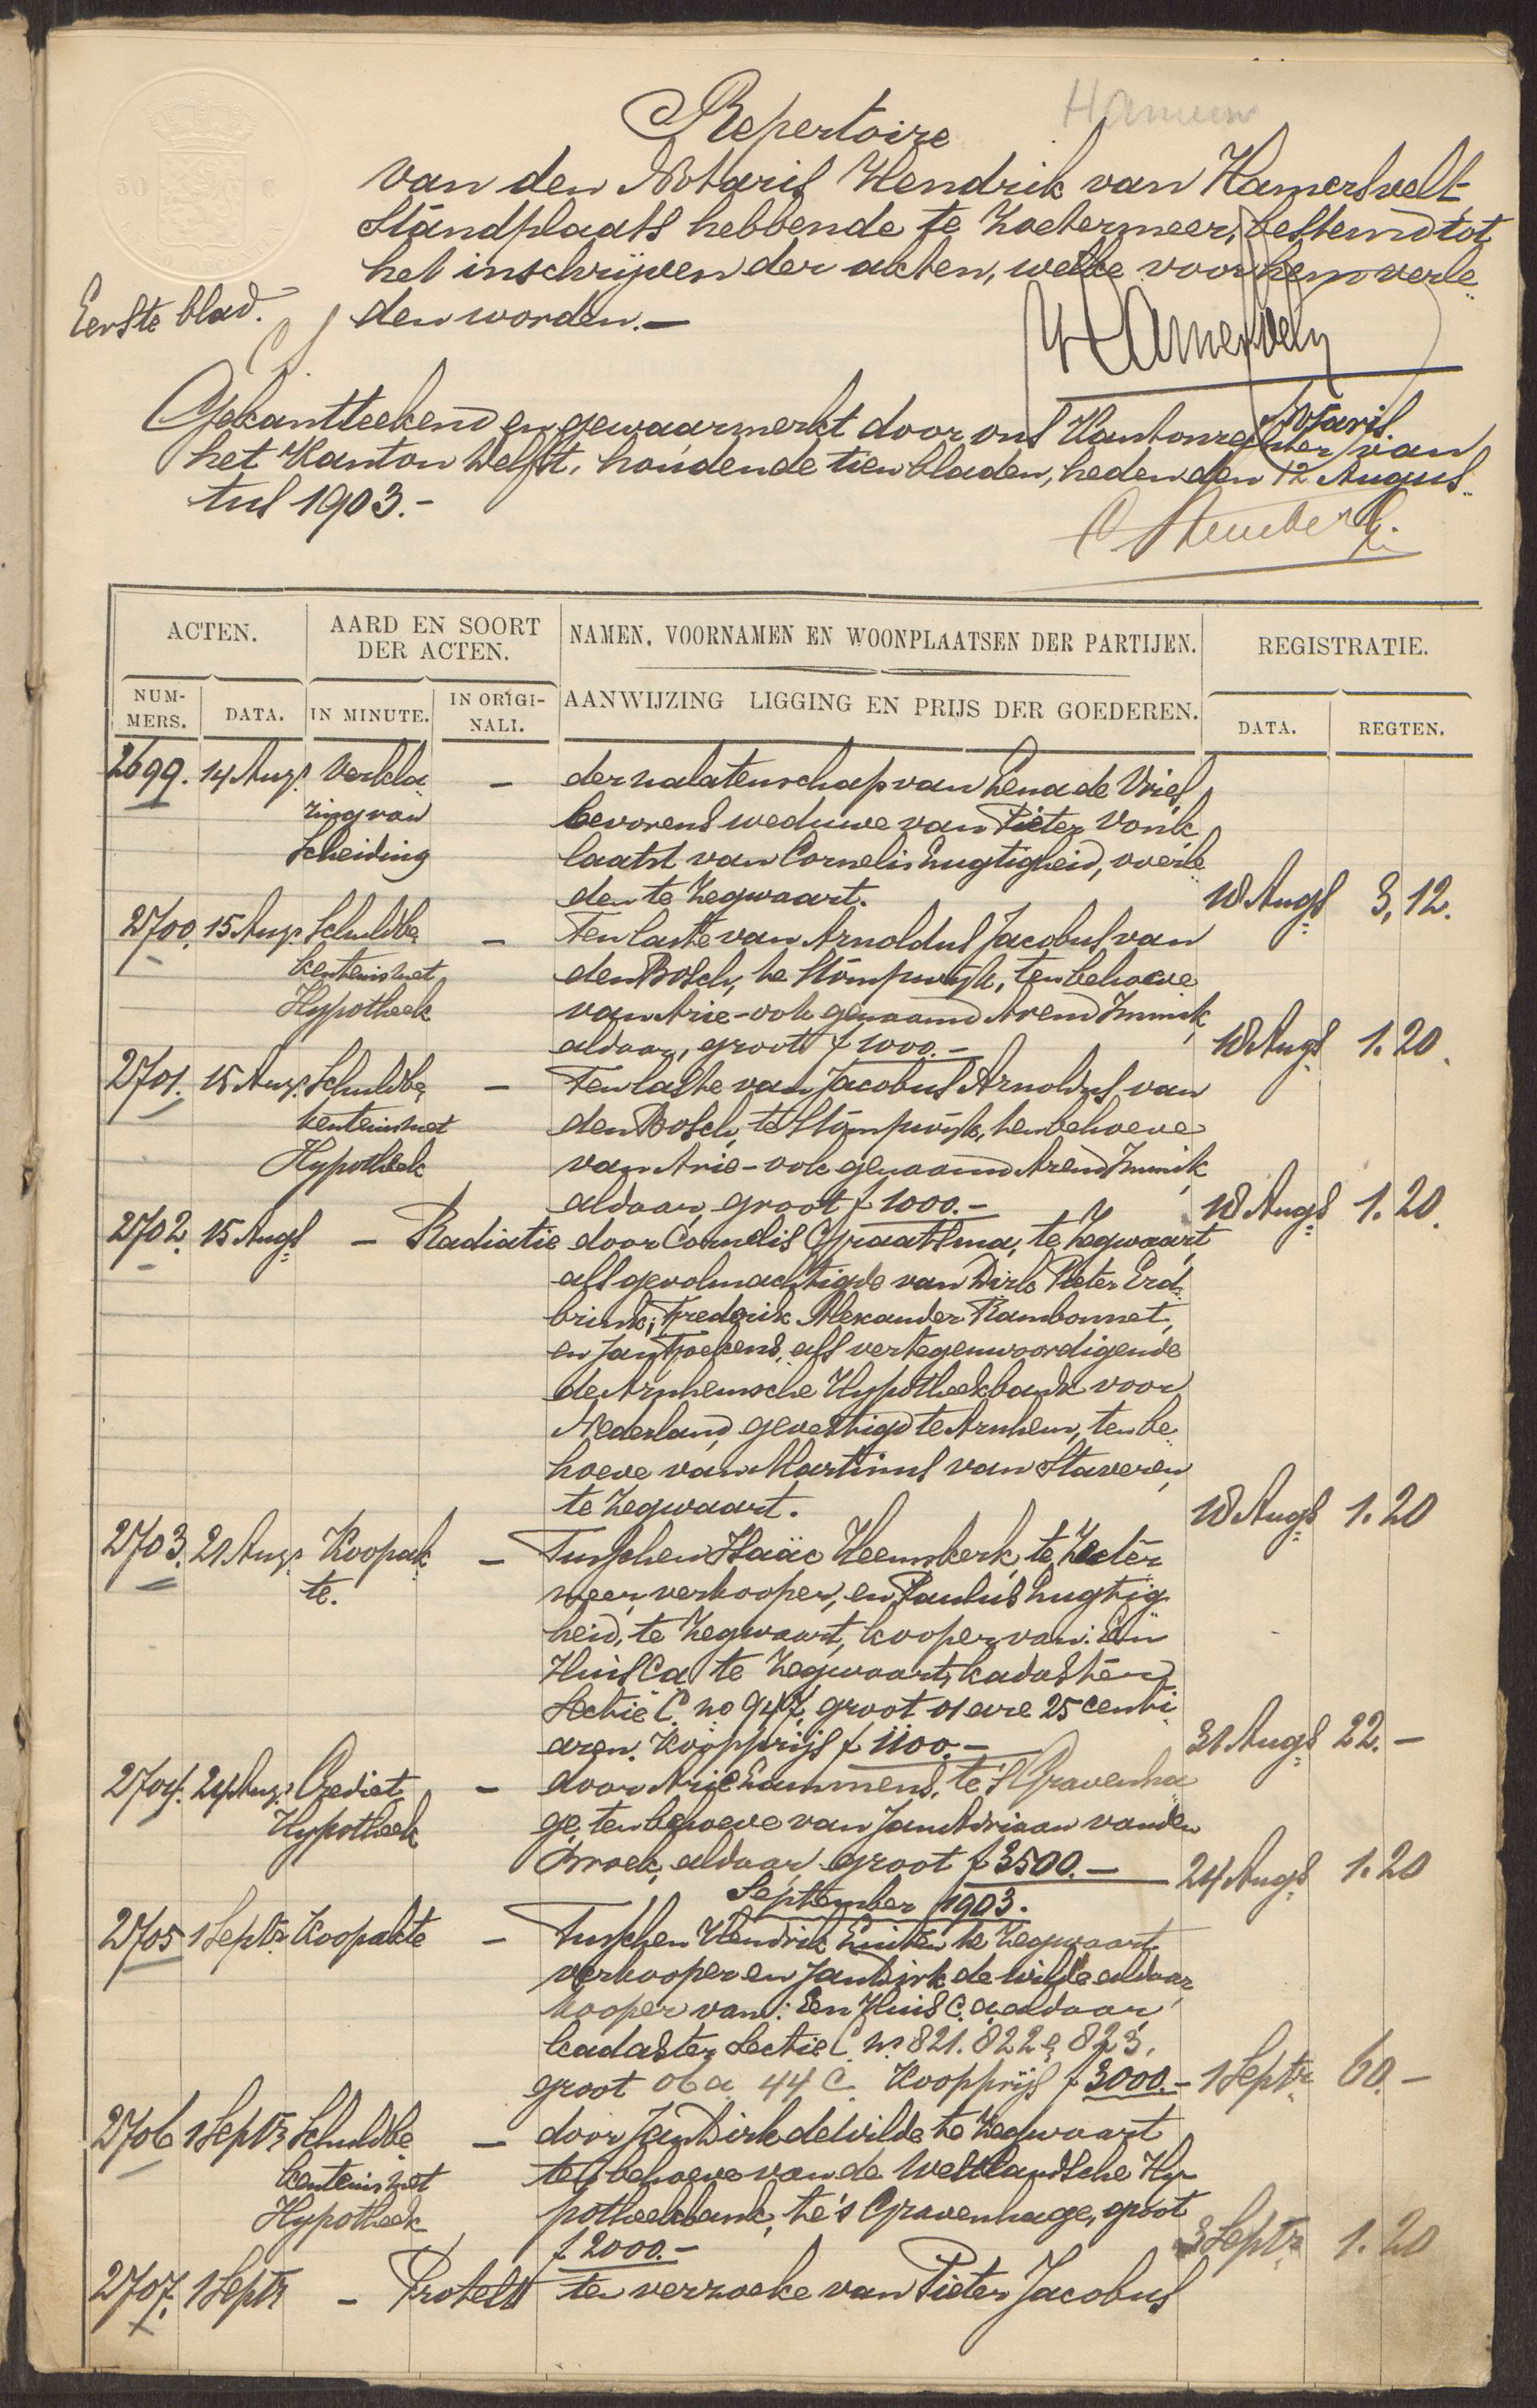 Repertoire
van den Notaris Hendrik van Hamersvelt
Standplaats hebbende te Zoetermeer, bestemd tot
het inschrijven der akten, welke voor hem verle„
Eerste blad. den worden.—
Notaris
Gekantteekend en gewaarmerkt door ons Kantonrechter van
het Kanton Delft, houdende tien bladen, heden den 12 Augus„
tus 1903.-
ACTEN.
AARD EN SOORT
DER ACTEN.
NAMEN, VOORNAMEN EN WOONPLAATSEN DER PARTIJEN.
REGISTRATIE.
NUM-
MERS.
DATA.
IN MINUTE.
IN ORIGI-
NALI.
AANWIJZING LIGGING EN PRIJS DER GOEDEREN.
DATA.
REGTEN.
2699. 14 Augs. Verkla„ — der nalatenschap van Lena de Vries,
ring van bevorens weduwe van Pieter Vonk
Scheiding laatst van Cornelis Lugtigheid, overle„
den te Zegwaart. 18 Augs 3,12.
2700. 15 Augs. Schuldbe„ — Ten laste van Arnoldus Jacobus van
kentenis met den Bosch, te Stompwijk, ten behoeve
Hypotheek van Arie - ook genaamd Arend
aldaar, groot f 1000.— 18 Augs 1.20.
2701. 15 Augs. Schuldbe„ — Ten laste van Jacobus Arnoldus van
kentenis met den Bosch, te Stompwijk, ten behoeve
Hypotheek van Arie - ook genaamd Arend
aldaar, groot f 1000.— 18 Augs 1.20.
2702. 15 Augs — Radiatie door Cornelis Graatsma, te Zegwaart,
als gevolmachtigde van Dirk Pieter Erd„
brink, Frederik Alexander Rambonnet,
en Jan als vertegenwoordigende
de Arnhemsche Hypotheekbank voor
Nederland, gevestigd te Arnhem, ten be„
hoeve van Martinus van Staveren,
te Zegwaart. 18 Augs 1.20
2703. 21 Augs. Koopak„ — Tusschen Isaäc Heemskerk, te Zoeter„
te. meer, verkooper, en Paulus Lugtig„
heid, te Zegwaart, kooper van: Een
Huis Ca te Zegwaart, kadaster
Sectie C no 947, groot 01 are 25 centi„
aren. Koopprijs f 1100.— 31 Augs 22.—
2704. 24 Augs. Crediet — door Arie Lammens, te 's Gravenha„
Hypotheek ge, ten behoeve van Jan Adriaan van den
Broek, aldaar, groot f 3500.— 24 Augs 1.20
September 1903.
2705 1 Septr. Koopakte — Tusschen Hendrik te Zegwaart
verkooper en Jan Dirk de Wilde aldaar,
kooper van: Een Huis c.a. aldaar,
kadaster Sectie C no. 821. 822 e 823,
groot 06 a 44 c. Koopprijs f 3000.— 1 Septr. 60.—
2706 1 Septr. Schuldbe„ — door Jan Dirk de Wilde te Zegwaart
kentenis met ten behoeve van de Westlandsche Hy-
Hypotheek potheekbank, te 's Gravenhage, groot
f 2000.— 3 Septr. 1.20
2707. 1 Septr — Protest ten verzoeke van Pieter Jacobus